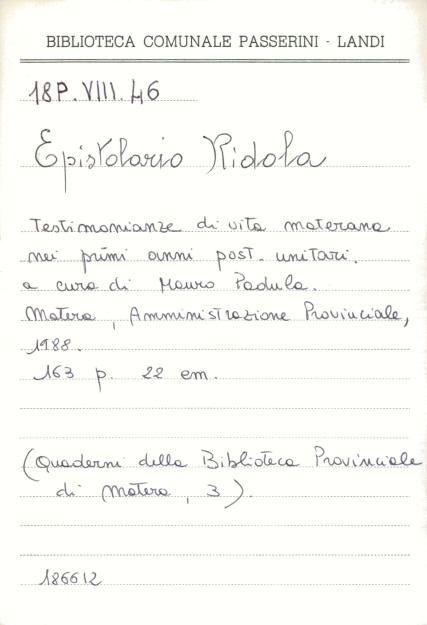 BIBLIOTECA COMUNALE PASSERINI - LANDI
18P.VIII.46
Epistolario Ridola
Testimonianze di vita materana
nei primi anni post-unitari.
a cura di Mauro Padula.
Matera, Amministrazione Provinciale,
1988.
163 p. 22 cm.
(Quaderni della Biblioteca Provinciale
di Matera, 3).
186612